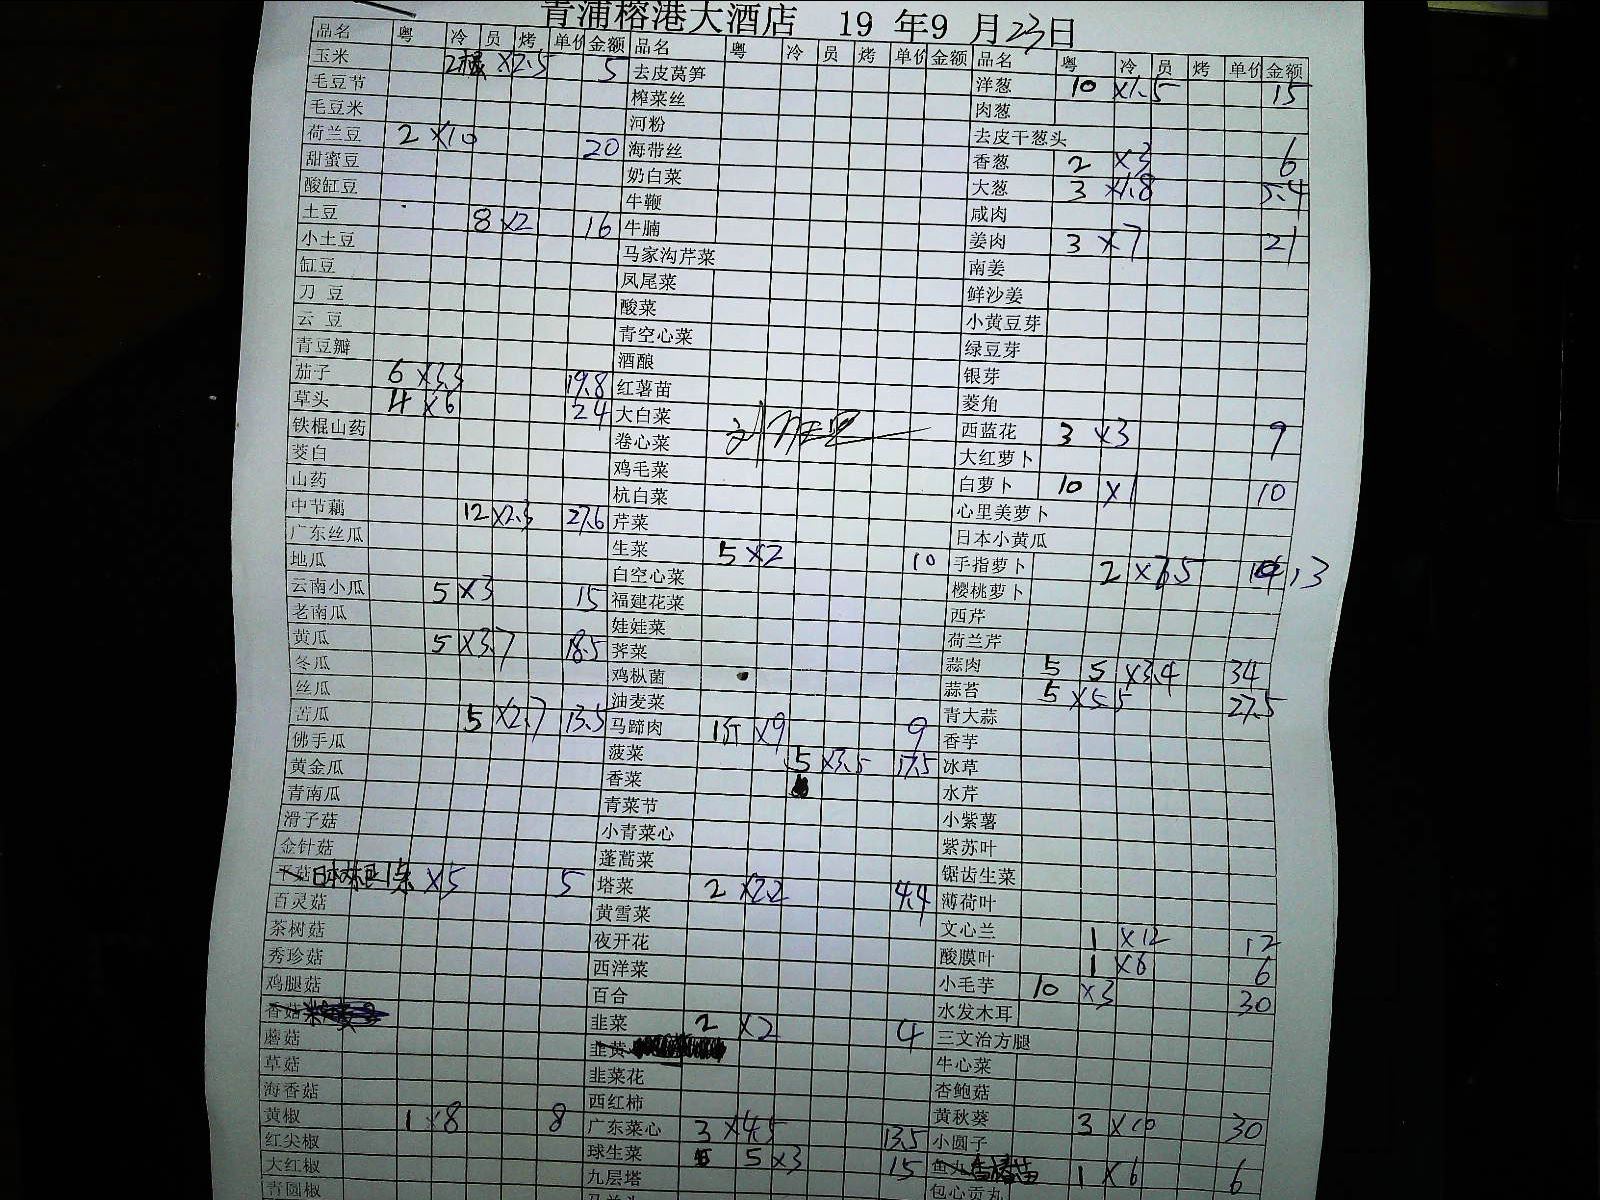 青浦榕港大酒店 19 年9 月23日
品名 粤 冷 员 烤 单价 金额 品名 粤 冷 员 烤 单价 金额 品名 粤 冷 员 烤 单价 金额
玉米 ×2.5 5 去皮莴笋 洋葱 10 ×1.5 15
毛豆节 榨菜丝 肉葱
毛豆米 河粉 去皮干葱头
荷兰豆 2 ×10 20 海带丝 香葱 2 ×3 6
甜蜜豆 奶白菜 大葱 3 ×1.8 5.4
酸缸豆 牛鞭 咸肉
土豆 8 ×2 16 牛腩 姜肉 3 ×7 21
小土豆 马家沟芹菜 南姜
缸豆 凤尾菜 鲜沙姜
刀豆 酸菜 小黄豆芽
云豆 青空心菜 绿豆芽
青豆瓣 酒酿 银芽
茄子 6 ×3.3 19.8 红薯苗 菱角
草头 4 ×6 24 大白菜 西蓝花 3 ×3 9
铁棍山药 卷心菜 大红萝卜
茭白 鸡毛菜 白萝卜 10 ×1 10
山药 杭白菜 心里美萝卜
中节藕 12 ×2.3 27.6 芹菜 日本小黄瓜
广东丝瓜 生菜 5 ×2 10 手指萝卜 2 ×6.5 13
地瓜 白空心菜 樱桃萝卜
云南小瓜 5 ×3 15 福建花菜 西芹
老南瓜 娃娃菜 荷兰芹
黄瓜 5 ×3.7 18.5 荠菜 蒜肉 5 5 ×3.4 34
冬瓜 鸡枞菌 蒜苔 5 ×5.5 27.5
丝瓜 油麦菜 青大蒜
苦瓜 5 ×2.7 13.5 马蹄肉 1斤 ×9 9 香芋
佛手瓜 菠菜 5 ×3.5 17.5 冰草
黄金瓜 香菜 水芹
青南瓜 青菜节 小紫薯
滑子菇 小青菜心 紫苏叶
金针菇 蓬蒿菜 锯齿生菜
平菇 ×5 5 塔菜 2 ×2.2 4.4 薄荷叶
百灵菇 黄雪菜 文心兰 1 ×12 12
茶树菇 夜开花 酸膜叶 1 ×6 6
秀珍菇 西洋菜 小毛芋 10 ×3 30
鸡腿菇 百合 水发木耳
香菇 韭菜 2 ×2 4 三文治方腿
蘑菇 韭黄 牛心菜
草菇 韭菜花 杏鲍菇
海香菇 西红柿 黄秋葵 3 ×10 30
黄椒 1 ×8 8 广东菜心 3 ×4.5 13.5 小圆子
红尖椒 球生菜 5 ×3 15 鱼丸 1 ×6 6
大红椒 九层塔 包心贡丸
青圆椒